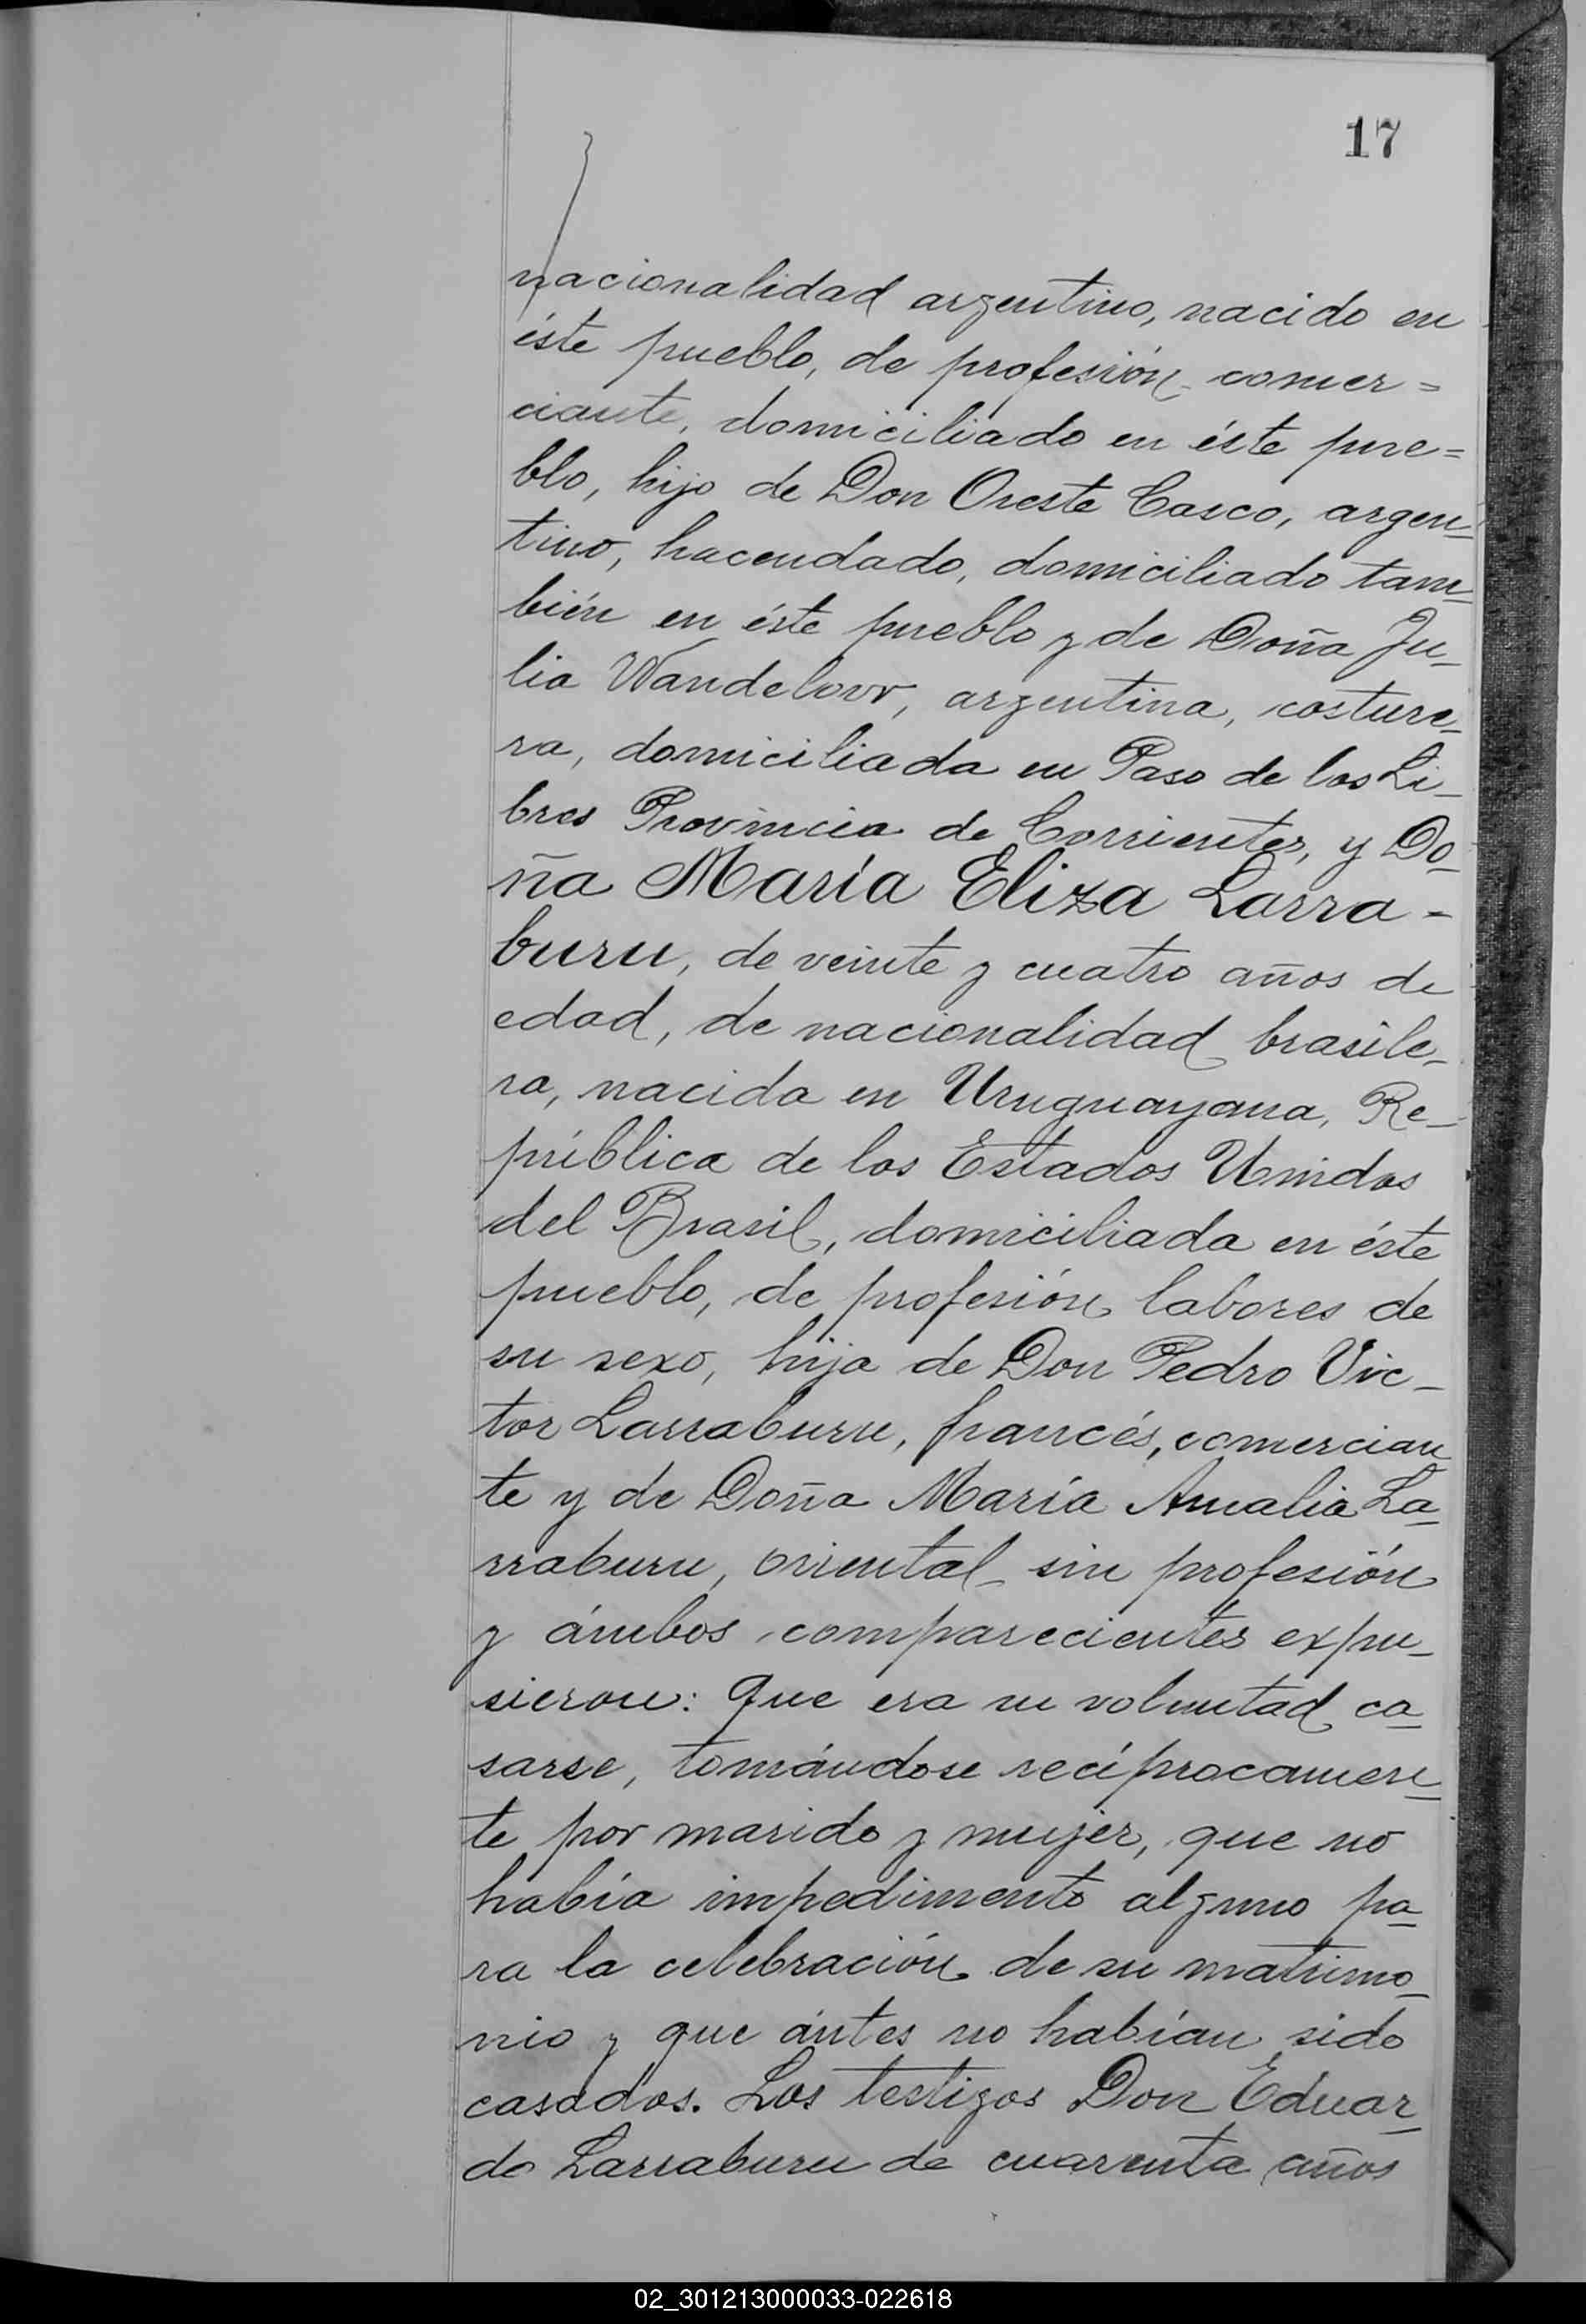 17
nacionalidad argentino, nacido en
éste pueblo, de profesión comer=
ciante, domiciliado en éste pue=
blo, hijo de Don Oreste Casco, argen-
tino, hacendado, domiciliado tam-
bién en éste pueblo y de Doña Ju-
lia Wandelovr, argentina, costure-
ra, domiciliada en Paso de los Li-
bres Provincia de Corrientes, y Do-
ña María Eliza Larra-
buru, de veinte y cuatro años de
edad, de nacionalidad brasile-
ra, nacida en Uruguayana, Re-
pública de los Estados Unidos
del Brasil, domiciliada en éste
pueblo, de profesión labores de
su sexo, hija de Don Pedro Vic-
tor Larraburu, francés, comercian-
te y de Doña María Amalia La-
rraburu, oriental sin profesión
y ámbos comparecientes expu-
sieron: Que era su voluntad ca-
sarse, tomándose recíprocamen-
te por marido y mujer, que no
había impedimento alguno pa-
ra la celebración de su matrimo-
nio y que ántes no habían sido
casados. Los testigos Don Eduar-
do Larraburu de cuarenta años
02_301213000033-022618